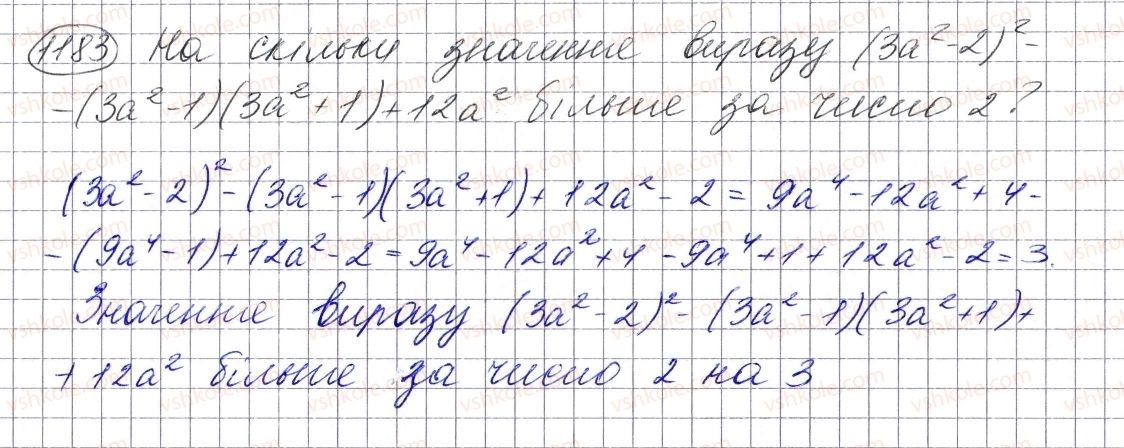 1183 На скільки значення виразу (3a²-2)²-
-(3a²-1)(3a²+1)+12a² більше за число 2?
(3a²-2)²-(3a²-1)(3a²+1)+12a²-2=9a⁴-12a²+4-
-(9a⁴-1)+12a²-2=9a⁴-12a²+4-9a⁴+1+12a²-2=3.
Значення виразу (3a²-2)²-(3a²-1)(3a²+1)+
+12a² більше за число 2 на 3